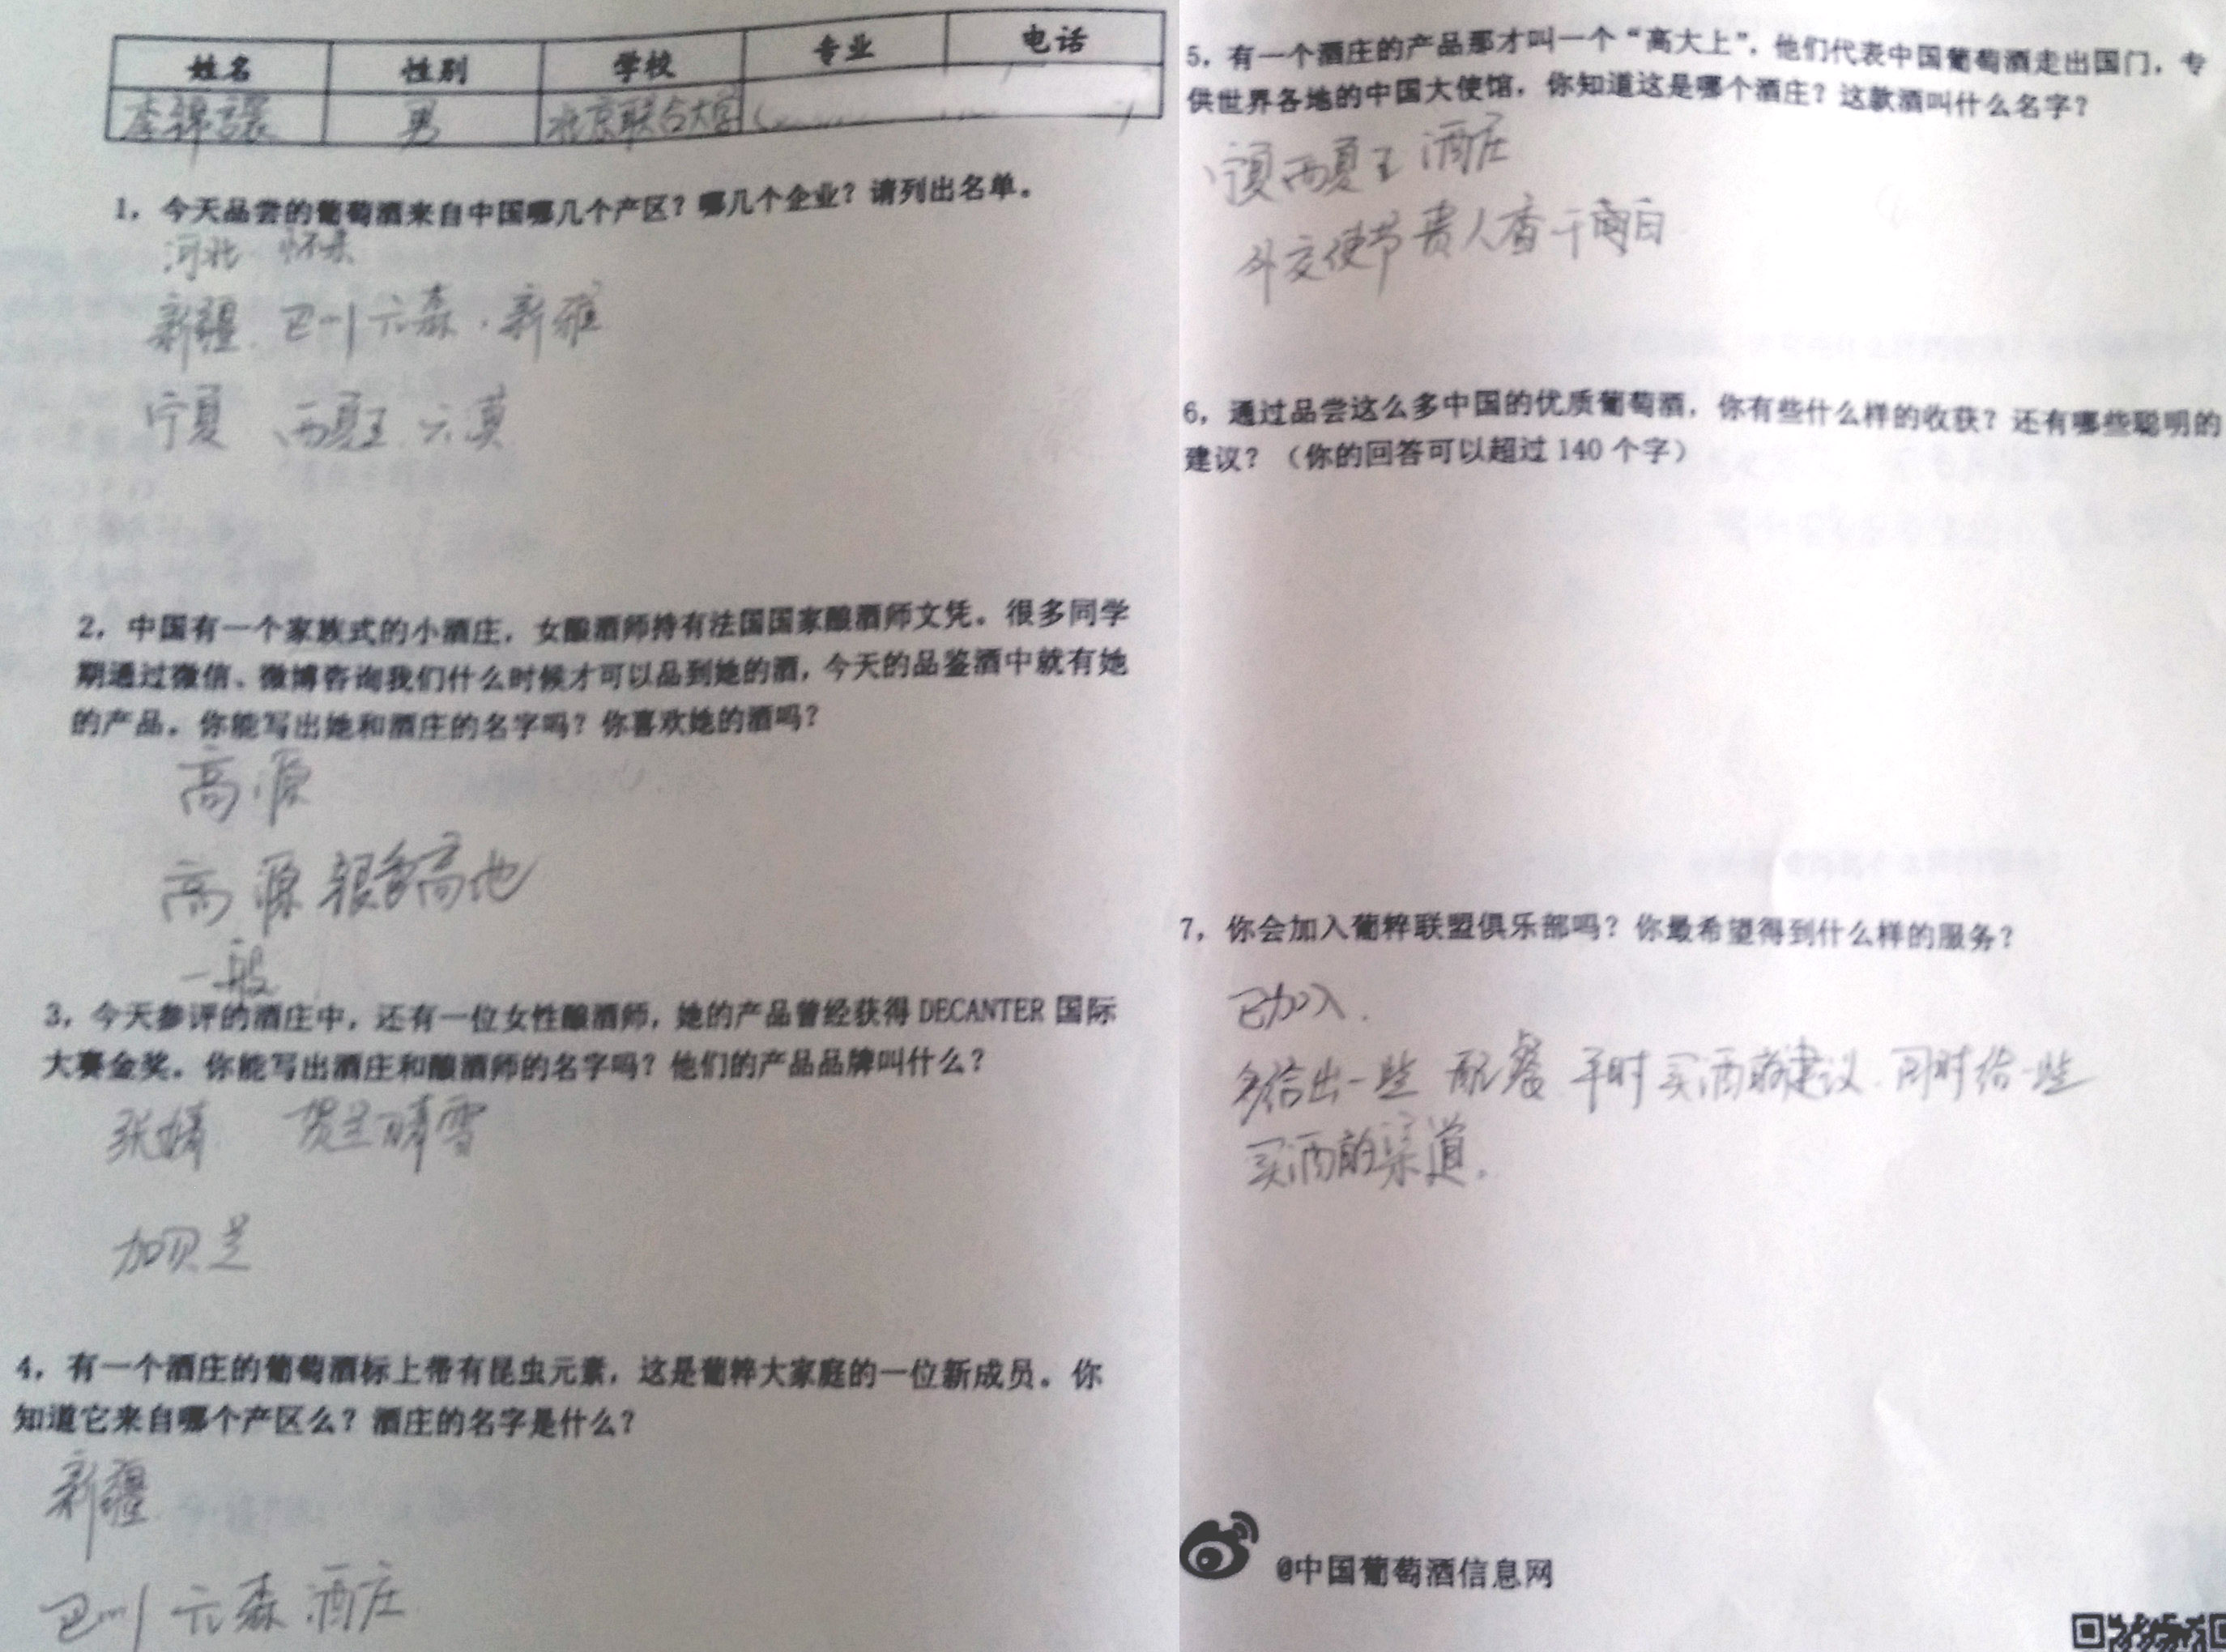 姓名 性别 学校 专业 电话
李锦 男 北京联合大学
1，今天品尝的葡萄酒来自中国哪几个产区？哪几个企业？请列出名单。
河北 怀来
新疆. 巴州元森. 新雅
宁夏 西夏王 六漠
2，中国有一个家族式的小酒庄，女酿酒师持有法国国家酿酒师文凭。很多同学
期通过微信、微博咨询我们什么时候才可以品到她的酒，今天的品鉴酒中就有她
的产品。你能写出她和酒庄的名字吗？你喜欢她的酒吗？
高源
高源银色高地
一般
3，今天参评的酒庄中，还有一位女性酿酒师，她的产品曾经获得 DECANTER 国际
大赛金奖。你能写出酒庄和酿酒师的名字吗？他们的产品品牌叫什么？
张婧 贺兰晴雪
加贝兰
4，有一个酒庄的葡萄酒标上带有昆虫元素，这是葡粹大家庭的一位新成员。你
知道它来自哪个产区么？酒庄的名字是什么？
新疆
巴州 元森 酒庄
5，有一个酒庄的产品那才叫一个“高大上”，他们代表中国葡萄酒走出国门，专
供世界各地的中国大使馆，你知道这是哪个酒庄？这款酒叫什么名字？
宁夏西夏王 酒庄
外交使节 贵人香干白
6，通过品尝这么多中国的优质葡萄酒，你有些什么样的收获？还有哪些聪明的
建议？（你的回答可以超过 140 个字）
7，你会加入葡粹联盟俱乐部吗？你最希望得到什么样的服务？
已加入.
多给出一些 配餐 平时买酒的建议. 同时给一些
买酒的渠道.
@中国葡萄酒信息网